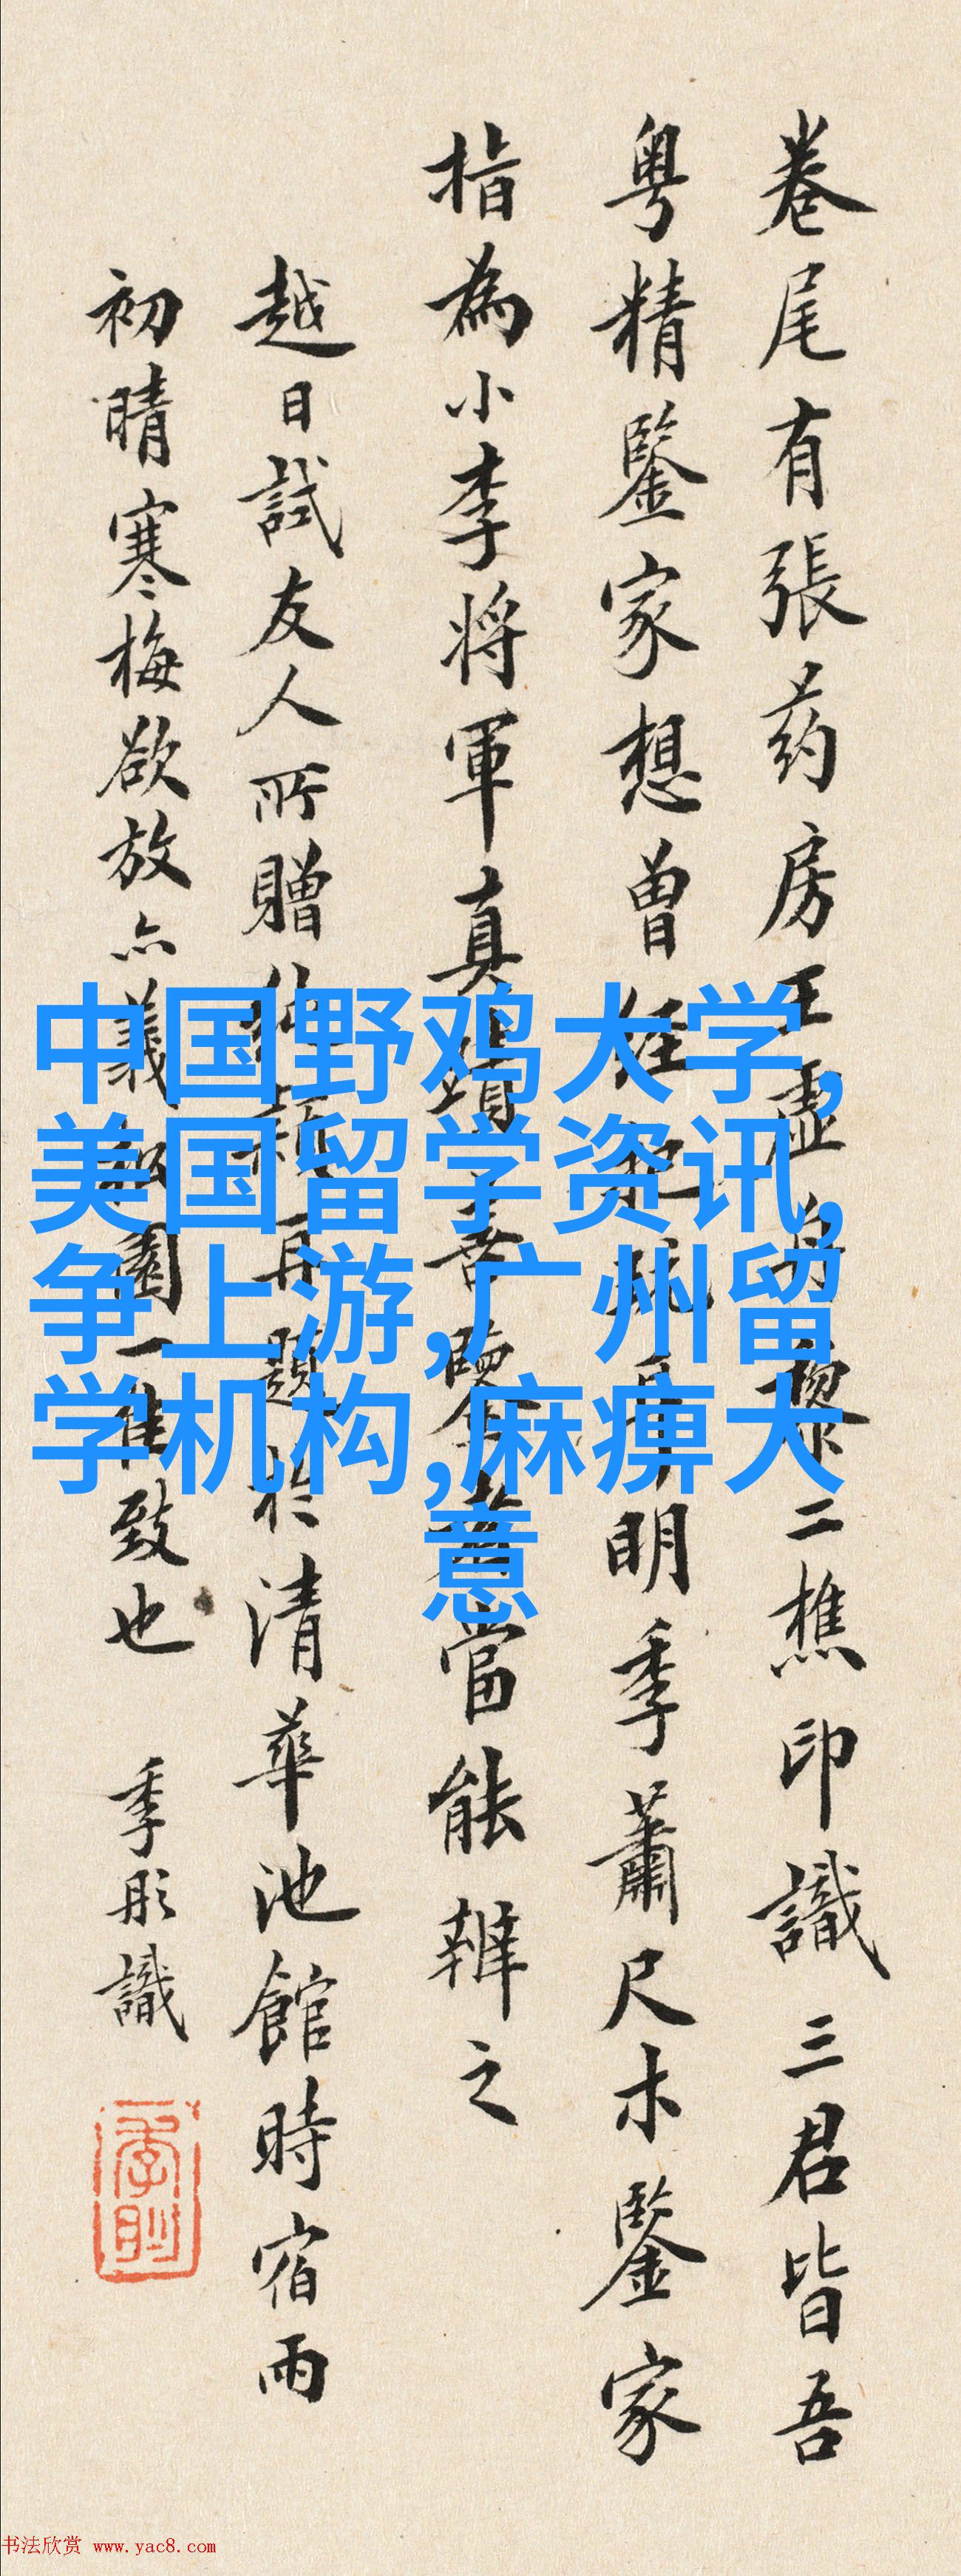 卷尾有張药房王虚舟黎二樵印識三君皆吾
粵精鑒家想曾明季蕭尺木鑒家
指為小李將軍真蹟善鑒者當能辨之
越日試友人所贈再題於清華池館時宿雨
初晴寒梅欲放亦義園一佳致也
季彤識
中国野鸡大学,
美国留学资讯,
争上游,广州留
学机构,麻痹大
意
书法欣赏 www.yac8.com